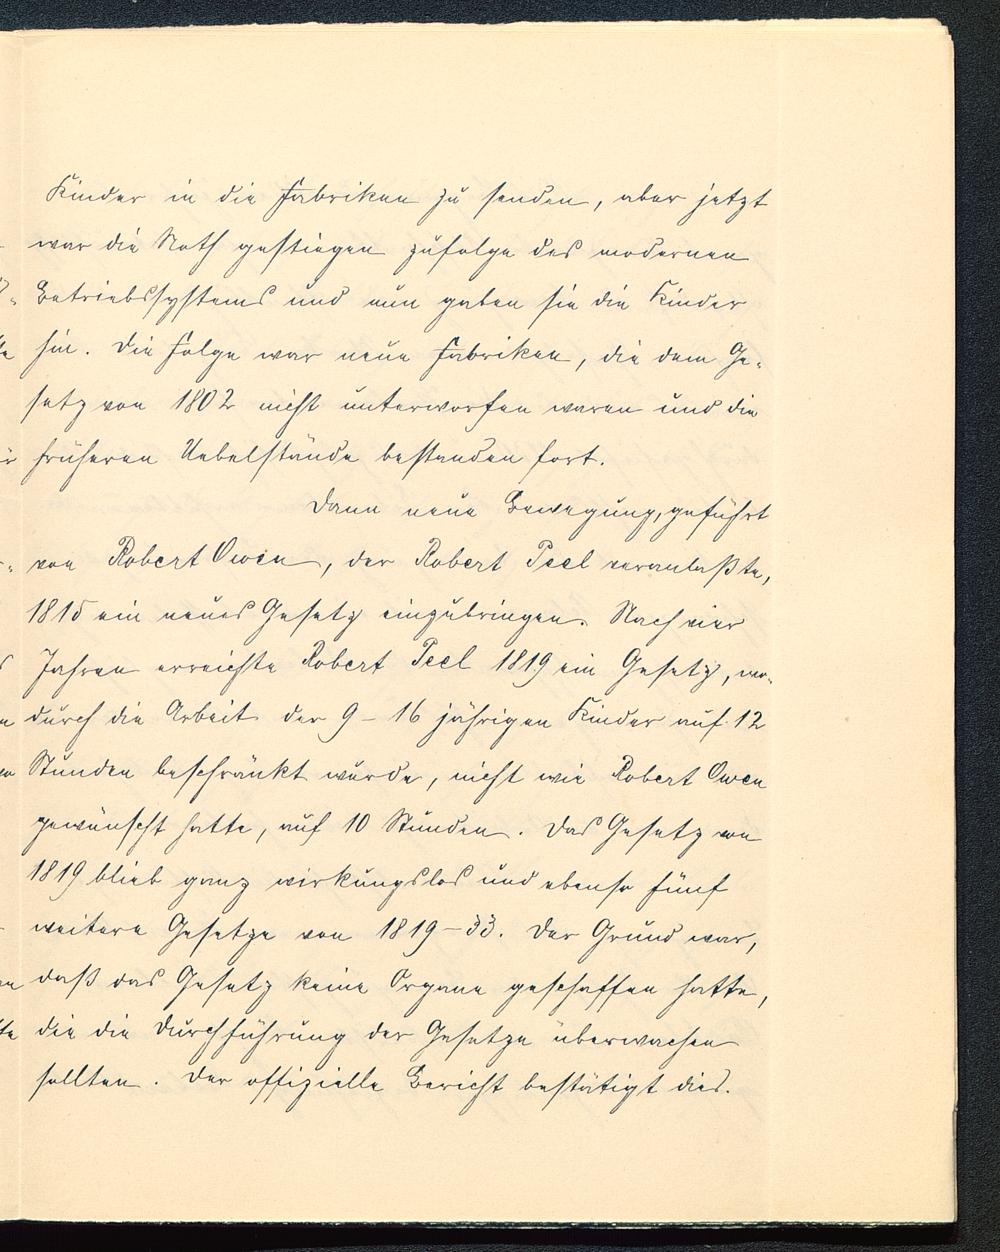 Kinder in die Fabriken zu senden, aber jetzt
war die Noth gestiegen zufolge des modernen
Betriebssystems und nun gaben sie die Kinder
hin. Die Folge war neue Fabriken, die dem Ge-
setz von 1802 nicht unterworfen waren und die
früheren Uebelstände bestanden fort.
Dann neue Bewegung, geführt
von Robert Owen, der Robert Peel veranlaßte,
1815 ein neues Gesetz einzubringen. Nach vier
Jahren erreichte Robert Peel 1819 ein Gesetz, wo-
durch die Arbeit der 9-16 jährigen Kinder auf 12
Stunden beschränkt wurde, nicht wie Robert Owen
gewünscht hatte, auf 10 Stunden. Das Gesetz von
1819 blieb ganz wirkungslos und ebenso fünf
weitere Gesetze von 1819-33. Der Grund war,
daß das Gesetz keine Organe geschaffen hatte,
die die Durchführung der Gesetze überwachen
sollten. Der offizielle Bericht bestätigt dies.